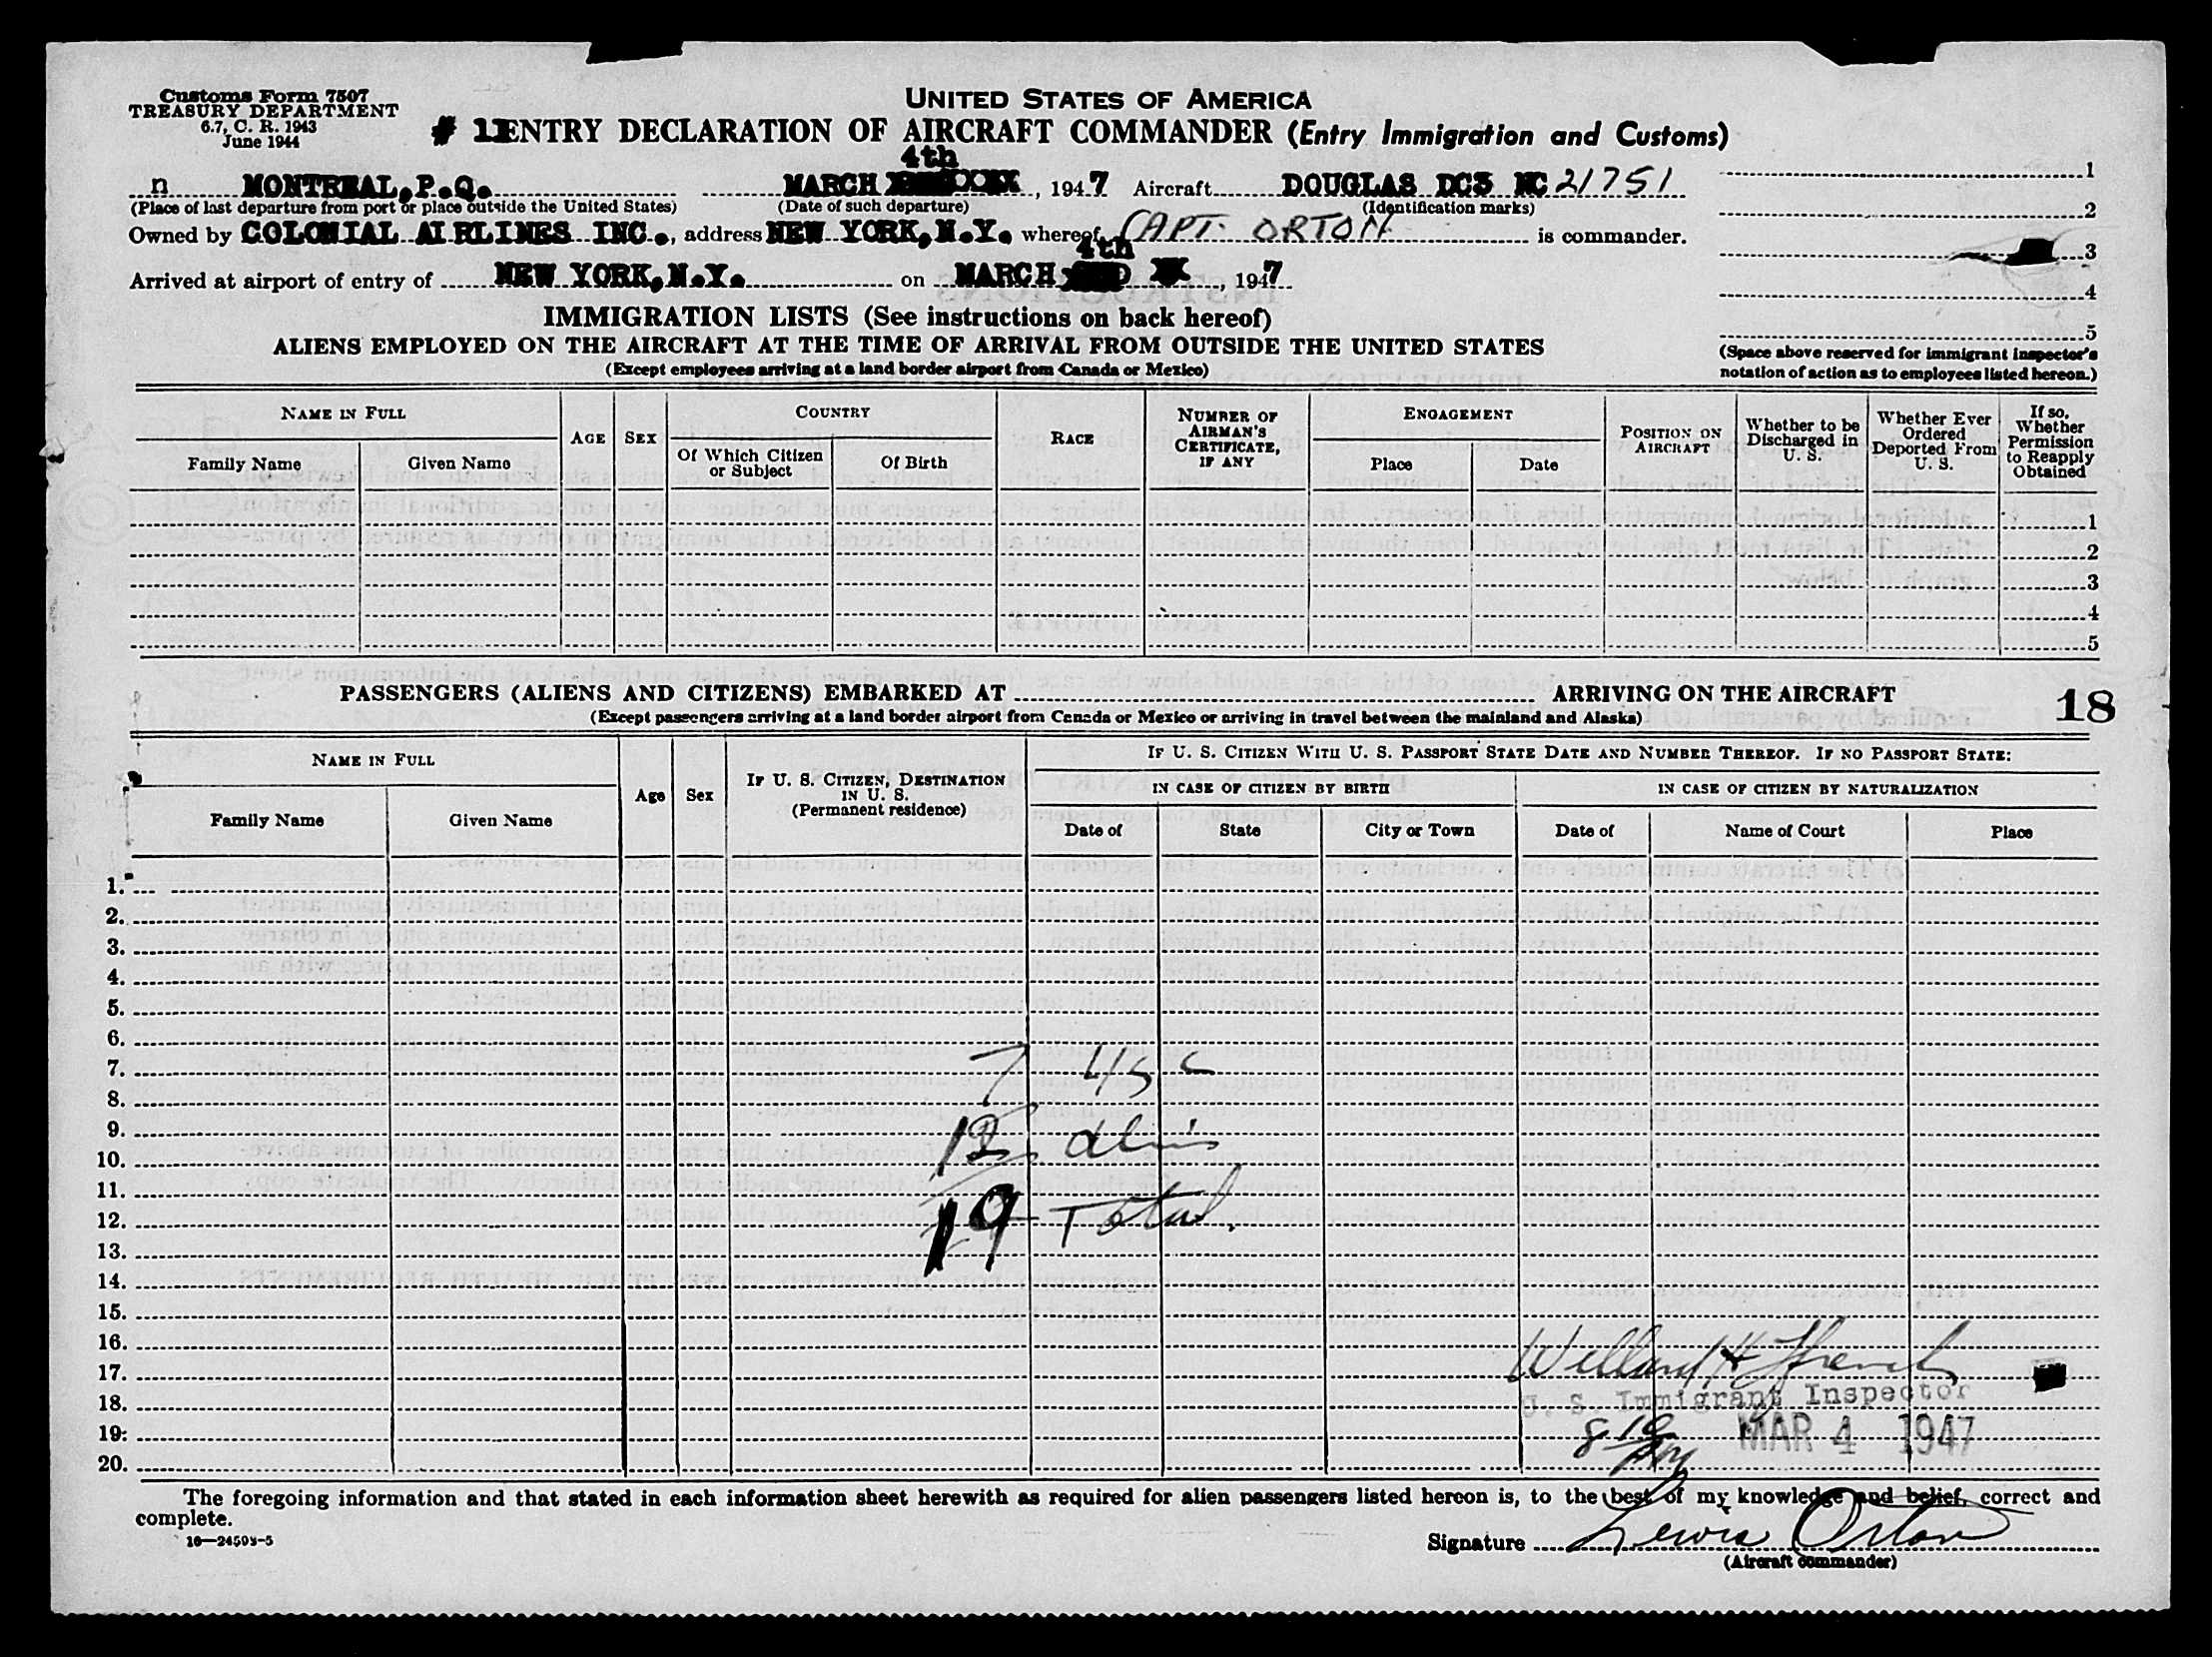 Customs Form 7507
TREASURY DEPARTMENT
6.7, C. R. 1943
June 1944
UNITED STATES OF AMERICA
# 11 ENTRY DECLARATION OF AIRCRAFT COMMANDER (Entry Immigration and Customs)
4th
n MONTREAL, P.Q. MARCH , 1947 Aircraft DOUGLAS DC3 NC 21751
(Place of last departure from port or place outside the United States) (Date of such departure) (Identification marks)
Owned by COLONIAL AIRLINES INC., address NEW YORK, N.Y. whereof CAPT. ORTON is commander.
4th
Arrived at airport of entry of NEW YORK, N.Y. on MARCH , 1947
1
2
3
4
5
(Space above reserved for immigrant inspector's
notation of action as to employees listed hereon.)
IMMIGRATION LISTS (See instructions on back hereof)
ALIENS EMPLOYED ON THE AIRCRAFT AT THE TIME OF ARRIVAL FROM OUTSIDE THE UNITED STATES
(Except employees arriving at a land border airport from Canada or Mexico)
NAME IN FULL
Family Name
Given Name
AGE
SEX
COUNTRY
Of Which Citizen
or Subject
Of Birth
RACE
NUMBER OF
AIRMAN'S
CERTIFICATE,
IF ANY
ENGAGEMENT
Place
Date
POSITION ON
AIRCRAFT
Whether to be
Discharged in
U. S.
Whether Ever
Ordered
Deported From
U. S.
If so,
Whether
Permission
to Reapply
Obtained
1
2
3
4
5
PASSENGERS (ALIENS AND CITIZENS) EMBARKED AT ARRIVING ON THE AIRCRAFT
(Except passengers arriving at a land border airport from Canada or Mexico or arriving in travel between the mainland and Alaska)
18
NAME IN FULL
Family Name
Given Name
Age
Sex
IF U. S. CITIZEN, DESTINATION
IN U. S.
(Permanent residence)
IF U. S. CITIZEN WITH U. S. PASSPORT STATE DATE AND NUMBER THEREOF. IF NO PASSPORT STATE:
IN CASE OF CITIZEN BY BIRTH
Date of
State
City or Town
IN CASE OF CITIZEN BY NATURALIZATION
Date of
Name of Court
Place
1.
2.
3.
4.
5.
6.
7. 7 USC
8.
9. 12
10.
11.
12. 19 Total
13.
14.
15.
16.
17. Willard H French
18. U. S. Immigrant Inspector
19. 8 10 PM MAR 4 1947
20.
The foregoing information and that stated in each information sheet herewith as required for alien passengers listed hereon is, to the best of my knowledge and belief, correct and
complete.
16—24593-5
Signature Lewis Orton
(Aircraft commander)